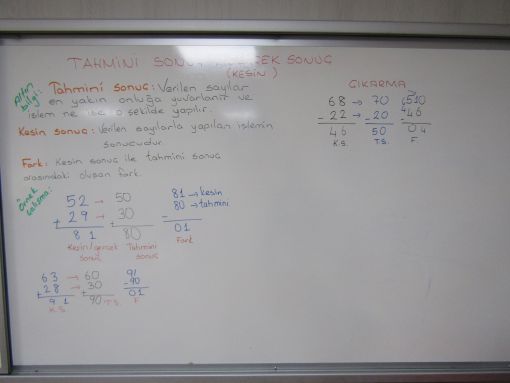 TAHMİNİ SONUÇ GERÇEK SONUÇ
(KESİN)
Altın bilgi:
Tahmini sonuç: Verilen sayılar
en yakın onluğa yuvarlanır ve
işlem ne ise o şekilde yapılır.
Kesin sonuç: Verilen sayılarla yapılan işlemin
sonucudur.
Fark: Kesin sonuç ile tahmini sonuç
arasındaki oluşan fark.
Örnek çalışma:
52 → 50
+ 29 → + 30
81 80
Kesin/gerçek sonuç Tahmini sonuç
81 → kesin
- 80 → tahmini
01
Fark
63 → 60 91
+ 28 → + 30 - 90
91 90 01
K.S. T.S. F
ÇIKARMA
68 → 70 510
- 22 → - 20 - 46
46 50 04
K.S. T.S. F.